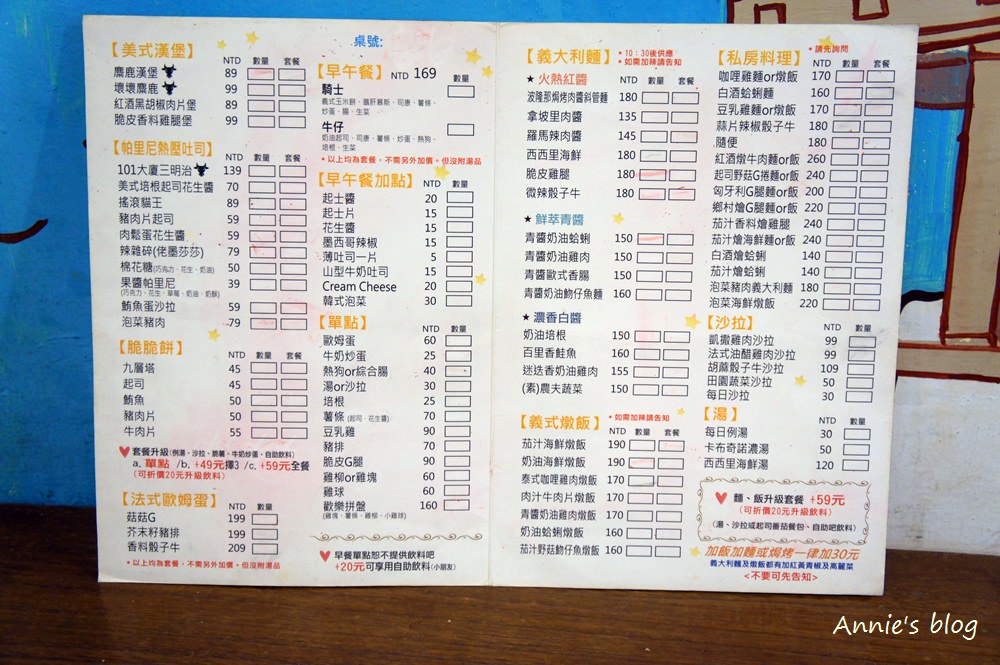 桌號:
【美式漢堡】
NTD 數量 套餐
麋鹿漢堡 89
壞壞麋鹿 99
紅酒黑胡椒肉片堡 89
脆皮香料雞腿堡 99
【帕里尼熱壓吐司】
NTD 數量 套餐
101大廈三明治 139
美式培根起司花生醬 70
搖滾貓王 89
豬肉片起司 59
肉鬆蛋花生醬 59
辣雜碎(佬墨莎莎) 79
棉花糖(巧克力、花生、奶油) 50
果醬帕里尼 39
(巧克力、花生、草莓、奶油、奶酥)
鮪魚蛋沙拉 59
泡菜豬肉 79
【脆脆餅】
NTD 數量 套餐
九層塔 45
起司 45
鮪魚 50
豬肉片 50
牛肉片 55
♥ 套餐升級(例湯、沙拉、脆薯、牛奶炒蛋、自助飲料)
a. 單點 /b. +49元擇3 /c. +59元全餐
(可折價20元升級飲料)
【法式歐姆蛋】
NTD 數量
菇菇G 199
芥末籽豬排 199
香料骰子牛 209
*以上均為套餐，不需另外加價。但沒附湯品
【早午餐】 NTD 169 數量
騎士
義式玉米餅、鵝肝慕斯、司康、薯條、
炒蛋、腸、生菜
牛仔
奶油起司、司康、薯條、炒蛋、熱狗、
培根、生菜
*以上均為套餐，不需另外加價。但沒附湯品
【早午餐加點】 NTD 數量
起士醬 20
起士片 15
花生醬 15
墨西哥辣椒 15
薄吐司一片 5
山型牛奶吐司 15
Cream Cheese 20
韓式泡菜 30
【單點】 NTD 數量
歐姆蛋 60
牛奶炒蛋 25
熱狗or綜合腸 40
湯or沙拉 30
培根 25
薯條 (起司、花生醬) 70
豆乳雞 90
豬排 70
脆皮G腿 90
雞柳or雞塊 60
雞球 60
歡樂拼盤 160
(雞塊、薯條、雞柳、小雞球)
♥ 早餐單點恕不提供飲料吧
+20元可享用自助飲料(小朋友)
【義大利麵】 *10：30後供應
*如需加辣請告知
★ 火熱紅醬 NTD 數量 套餐
波隆那焗烤肉醬斜管麵 180
拿坡里肉醬 135
羅馬辣肉醬 145
西西里海鮮 180
脆皮雞腿 180
微辣骰子牛 180
★ 鮮萃青醬
青醬奶油蛤蜊 150
青醬奶油雞肉 150
青醬歐式香腸 150
青醬奶油魩仔魚麵 160
★ 濃香白醬
奶油培根 150
百里香鮭魚 160
迷迭香奶油雞肉 155
(素)農夫蔬菜 150
【義式燉飯】 *如需加辣請告知
NTD 數量 套餐
茄汁海鮮燉飯 190
奶油海鮮燉飯 190
泰式咖哩雞肉燉飯 170
肉汁牛肉片燉飯 170
青醬奶油雞肉燉飯 170
奶油蛤蜊燉飯 160
茄汁野菇魩仔魚燉飯 160
【私房料理】 *請先詢問
NTD 數量 套餐
咖哩雞麵or燉飯 170
白酒蛤蜊麵 160
豆乳雞麵or燉飯 170
蒜片辣椒骰子牛 180
隨便 180
紅酒燉牛肉麵or飯 260
起司野菇G捲麵or飯 240
匈牙利G腿麵or飯 200
鄉村燴G腿麵or飯 220
茄汁香料燴雞腿 240
茄汁燴海鮮麵or飯 240
白酒燴蛤蜊 140
茄汁燴蛤蜊 140
泡菜豬肉義大利麵 180
泡菜海鮮燉飯 220
【沙拉】 NTD 數量
凱撒雞肉沙拉 99
法式油醋雞肉沙拉 99
胡蔴骰子牛沙拉 109
田園蔬菜沙拉 50
每日沙拉 30
【湯】 NTD 數量
每日例湯 30
卡布奇諾濃湯 50
西西里海鮮湯 120
♥ 麵、飯升級套餐 +59元
(可折價20元升級飲料)
(湯、沙拉或起司番茄餐包、自助吧飲料)
加飯加麵或焗烤一律加30元
義大利麵及燉飯都有加紅黃青椒及高麗菜
<不要可先告知>
Annie's blog